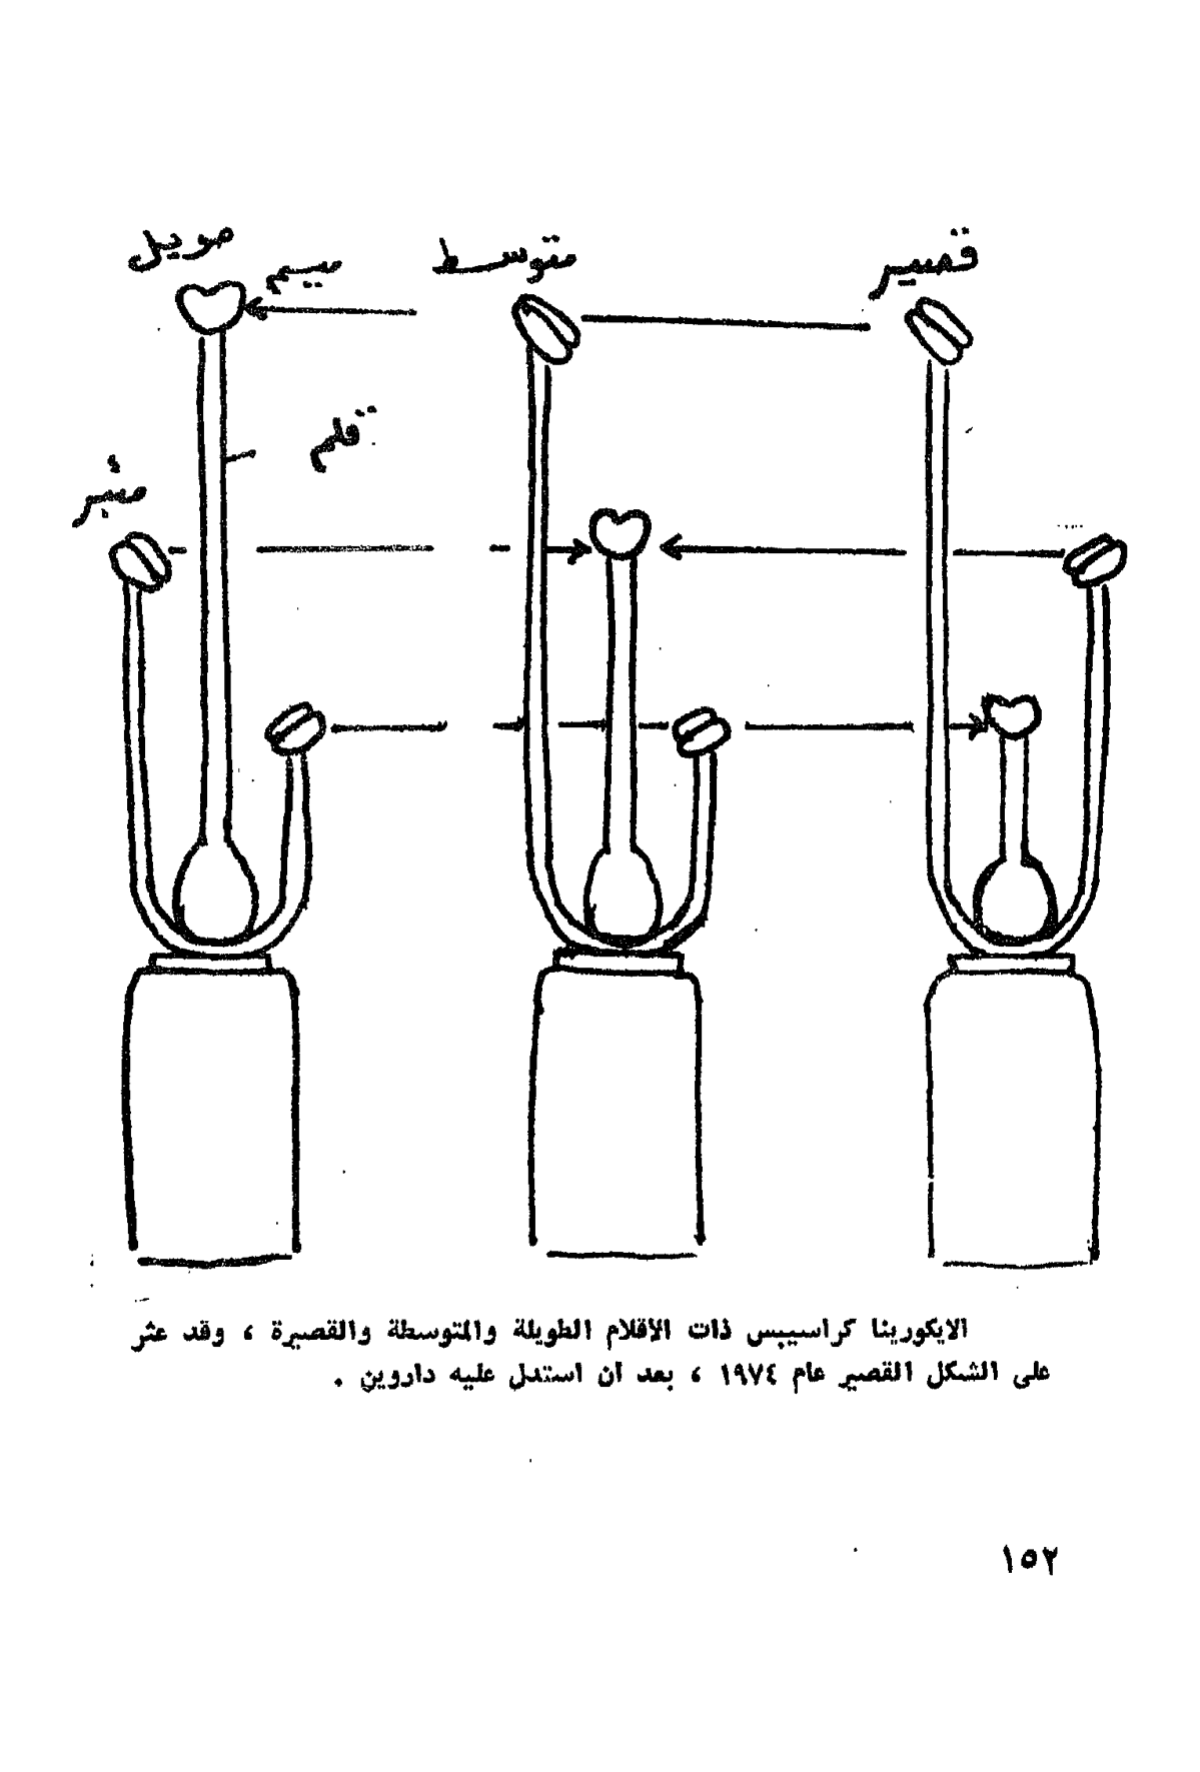 قصير
متوسط
طويل
ميسم
قلم
مئبر
الايكورينا كراسيبس ذات الاقلام الطويلة والمتوسطة والقصيرة ، وقد عثر
على الشكل القصير عام ١٩٧٤ ، بعد ان استدل عليه داروين .
١٥٢